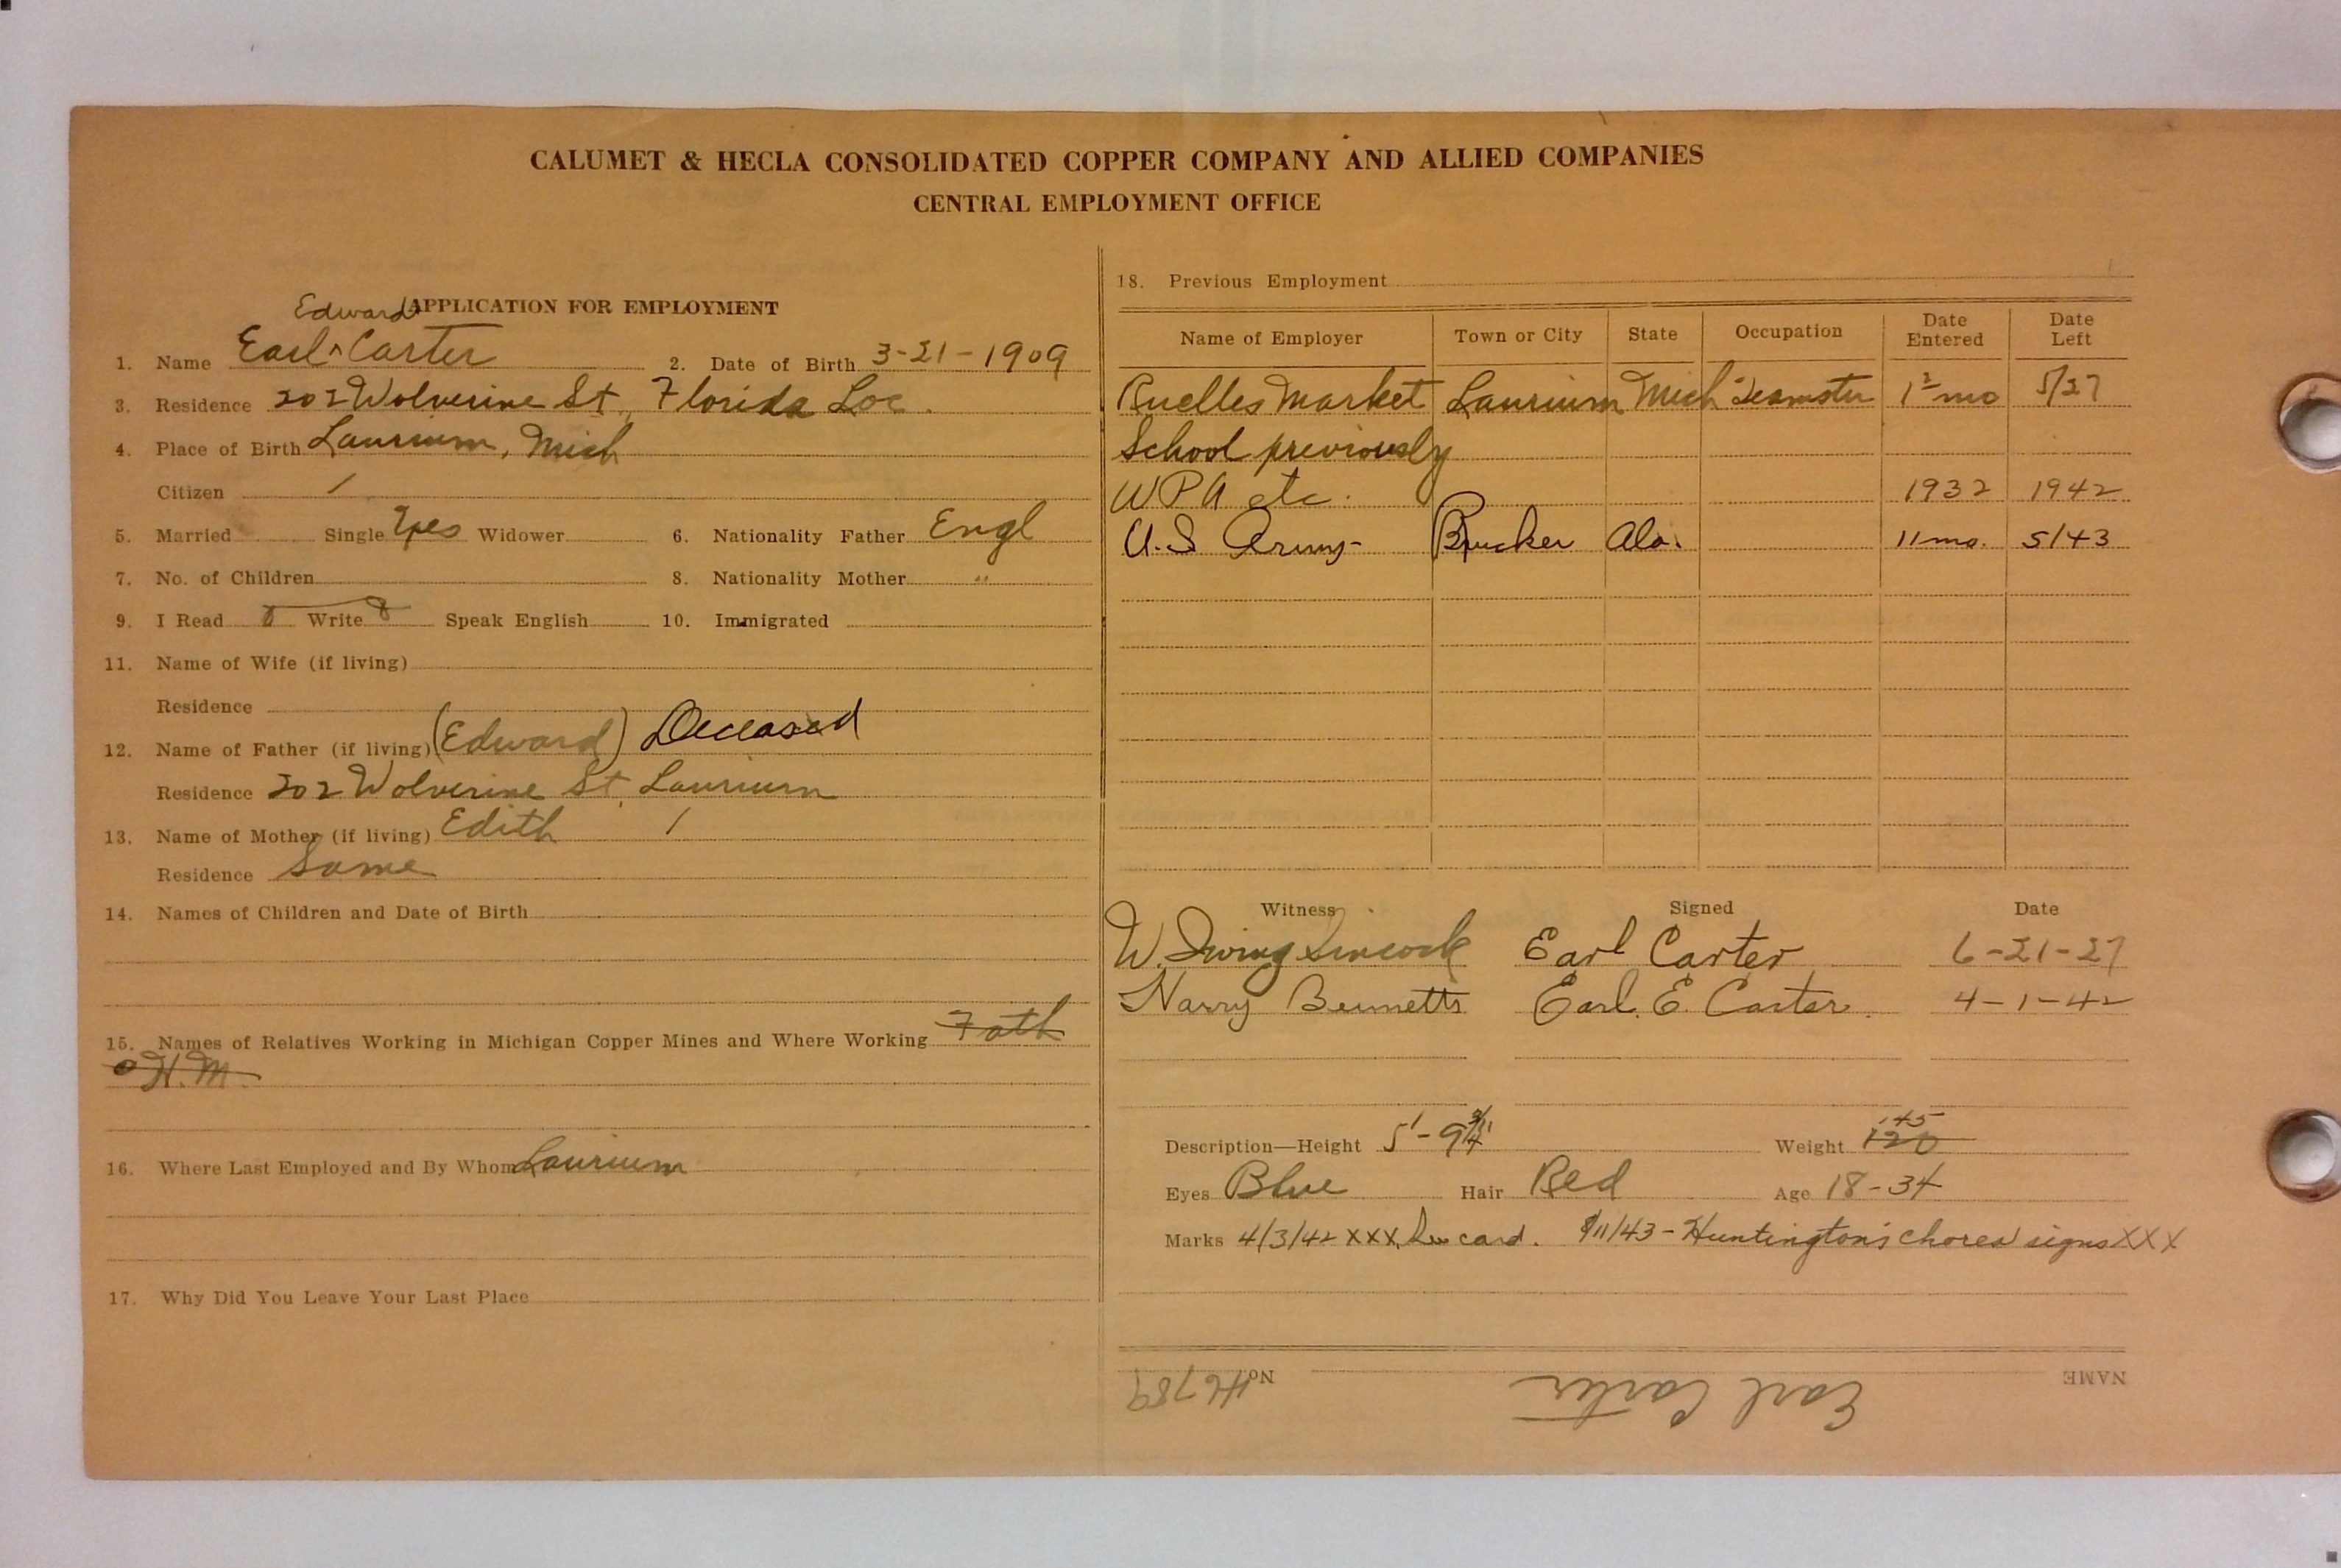 CALUMET & HECLA CONSOLIDATED COPPER COMPANY AND ALLIED COMPANIES
CENTRAL EMPLOYMENT OFFICE
APPLICATION FOR EMPLOYMENT
Edward
1. Name Earl ^ Carter 2. Date of Birth 3-21-1909
3. Residence 202 Wolverine St, Florida Loc.
4. Place of Birth Laurium, Mich
Citizen /
5. Married Single Yes Widower 6. Nationality Father Engl
7. No. of Children 8. Nationality Mother "
9. I Read Write Speak English 10. Immigrated
11. Name of Wife (if living)
Residence
12. Name of Father (if living) (Edward) Deceased
Residence 202 Wolverine St, Laurium
13. Name of Mother (if living) Edith /
Residence Same
14. Names of Children and Date of Birth
15. Names of Relatives Working in Michigan Copper Mines and Where Working Fath
H.M.
16. Where Last Employed and By Whom Laurium
17. Why Did You Leave Your Last Place
18. Previous Employment
Name of Employer Town or City State Occupation Date Entered Date Left
Ruelles Market Laurium Mich Teamster mo 5/27
School previously
WPA etc. 1932 1942
U.S Army- Rucker Ala. 11 mo. 5/43
Witness Signed Date
W. Irving Sincock Earl Carter 6-21-27
Harry Bennetts Earl. E. Carter. 4-1-42
Description—Height 5'-9 Weight 120 145
Eyes Blue Hair Red Age 18-34
Marks 4/3/42 XXX See card. 11/43 - Huntington's chorea signs XXX
NAME Earl Carter No. H6789